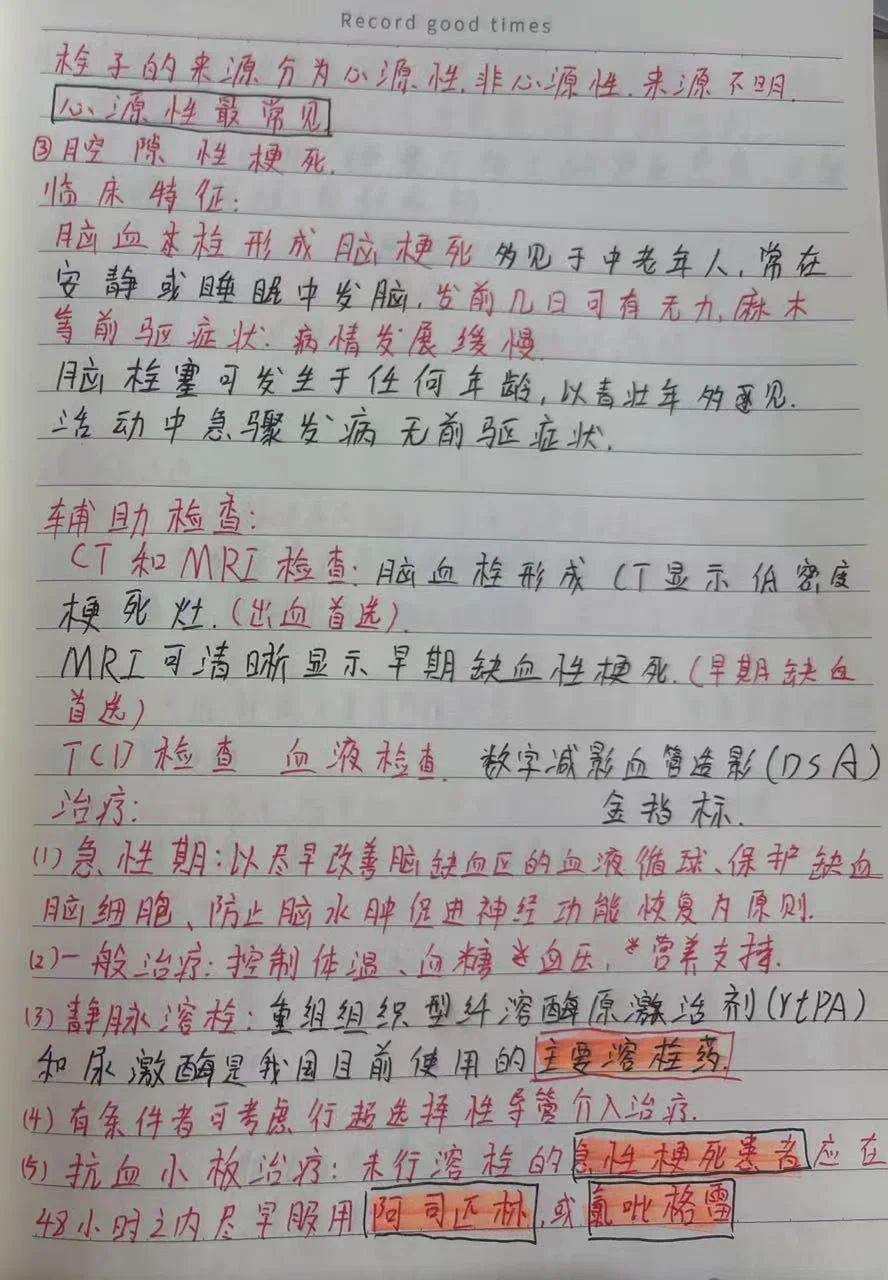 Record good times
栓子的来源分为心源性.非心源性.来源不明.
心源性最常见
③腔隙性梗死.
临床特征:
脑血栓形成脑梗死多见于中老年人,常在
安静或睡眠中发脑,发前几日可有无力,麻木
等前驱症状.病情发展缓慢.
脑栓塞可发生于任何年龄,以青壮年多见.
活动中急骤发病无前驱症状.
辅助检查:
CT和MRI检查:脑血栓形成CT显示低密度
梗死灶.(出血首选).
MRI可清晰显示早期缺血性梗死.(早期缺血
首选)
TCD检查 血液检查. 数字减影血管造影(DSA)
治疗: 金指标.
(1)急性期:以尽早改善脑缺血区的血液循球、保护缺血
脑细胞、防止脑水肿促进神经功能恢复为原则.
(2)一般治疗:控制体温、血糖*血压,*营养支持.
(3)静脉溶栓:重组组织型纤溶酶原激活剂(rtPA)
和尿激酶是我国目前使用的主要溶栓药.
(4)有条件者可考虑行超选择性导管介入治疗.
(5)抗血小板治疗:未行溶栓的急性梗死患者应在
48小时之内尽早服用阿司匹林,或氯吡格雷